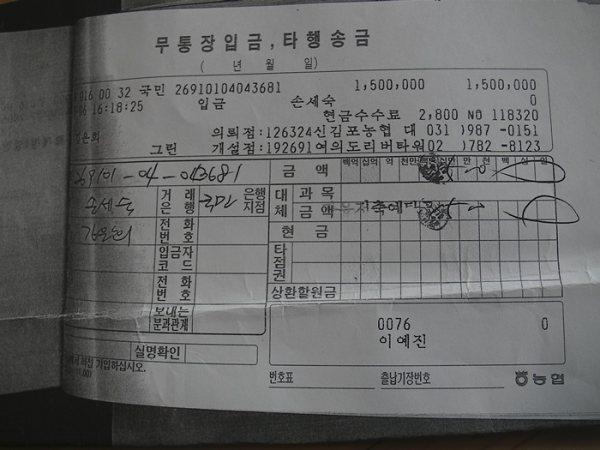 무통장입금, 타행송금
( 년 월 일)
016 00 32 국민 26910104043681 1,500,000 1,500,000
16:18:25 입금 손세숙 0
현금수수료 2,800 NB 118320
의뢰점:126324신김포농협 대 031 )987 -0151
그린 개설점:192691여의도리버타워02 )782 -8123
-04-043681 금 액 백억 십억 억 천만 만 천 백 십 일
손세숙 거 래 은 행 국민 은행 지점 대 체 과 목
금 액
전 화 번 호 현 금
입금자 코 드 타 점 권
전 화 번 호
상환할원금
보내는 분과관계
0076 0
이예진
실명확인
기입하십시오.
번호표 출납기장번호 농협